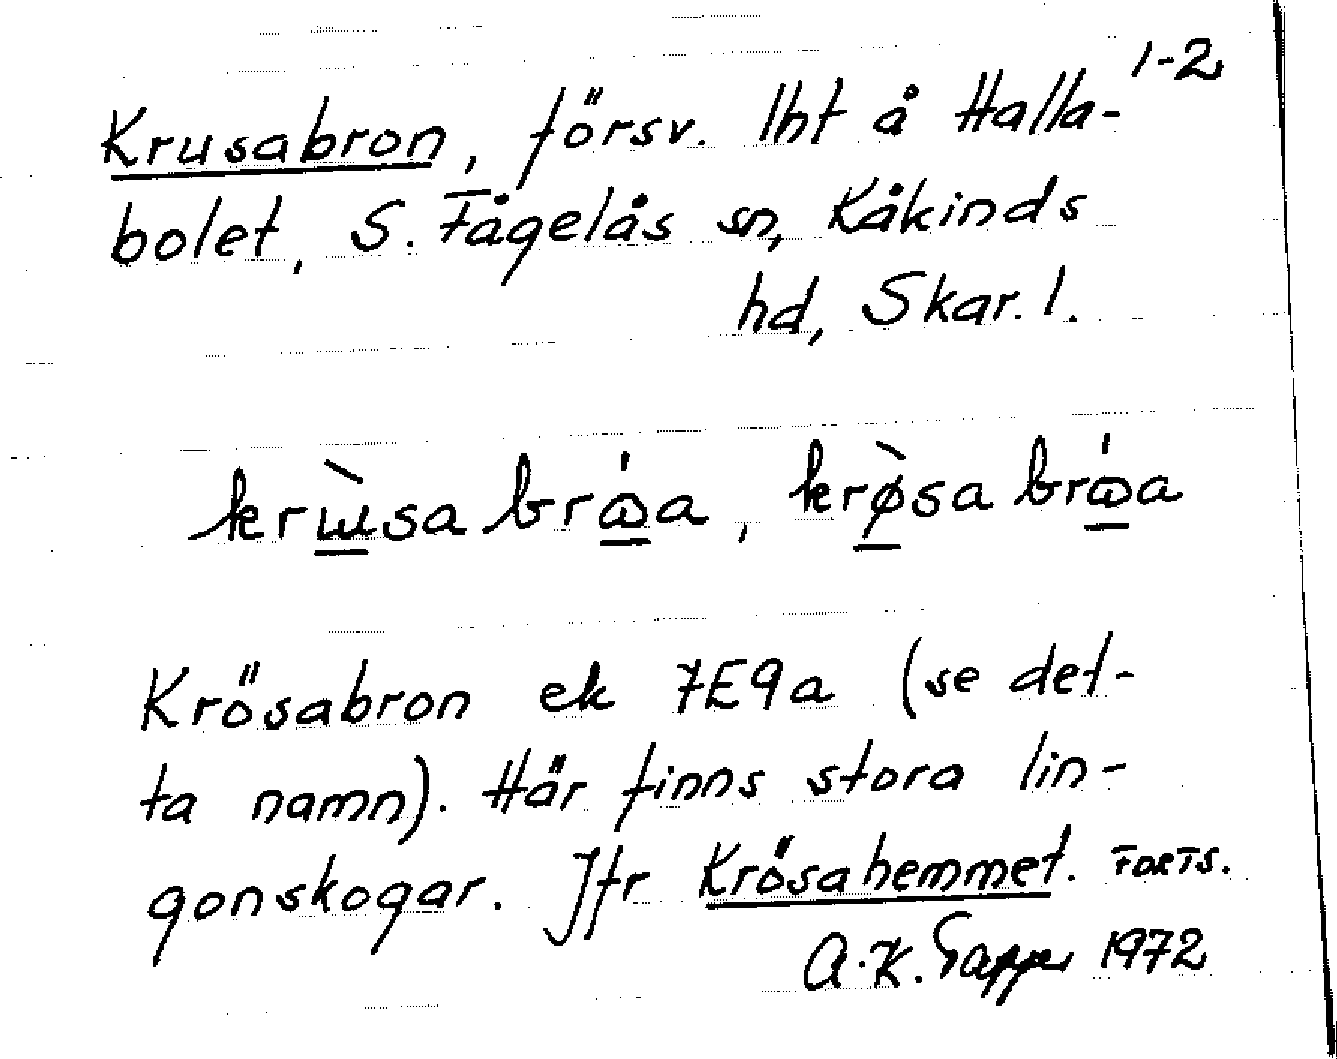 1-2
Krusabron, försv. lht å Halla-
bolet, S. Fågelås sn, Kåkinds
hd, Skar. l.
krɯ̀sa brɷ́a, krø̀sa brɷ́a
Krösabron ek 7E9a (se det-
ta namn). Här finns stora lin-
gonskogar. Jfr Krösahemmet. FORTS.
A.K. 1972